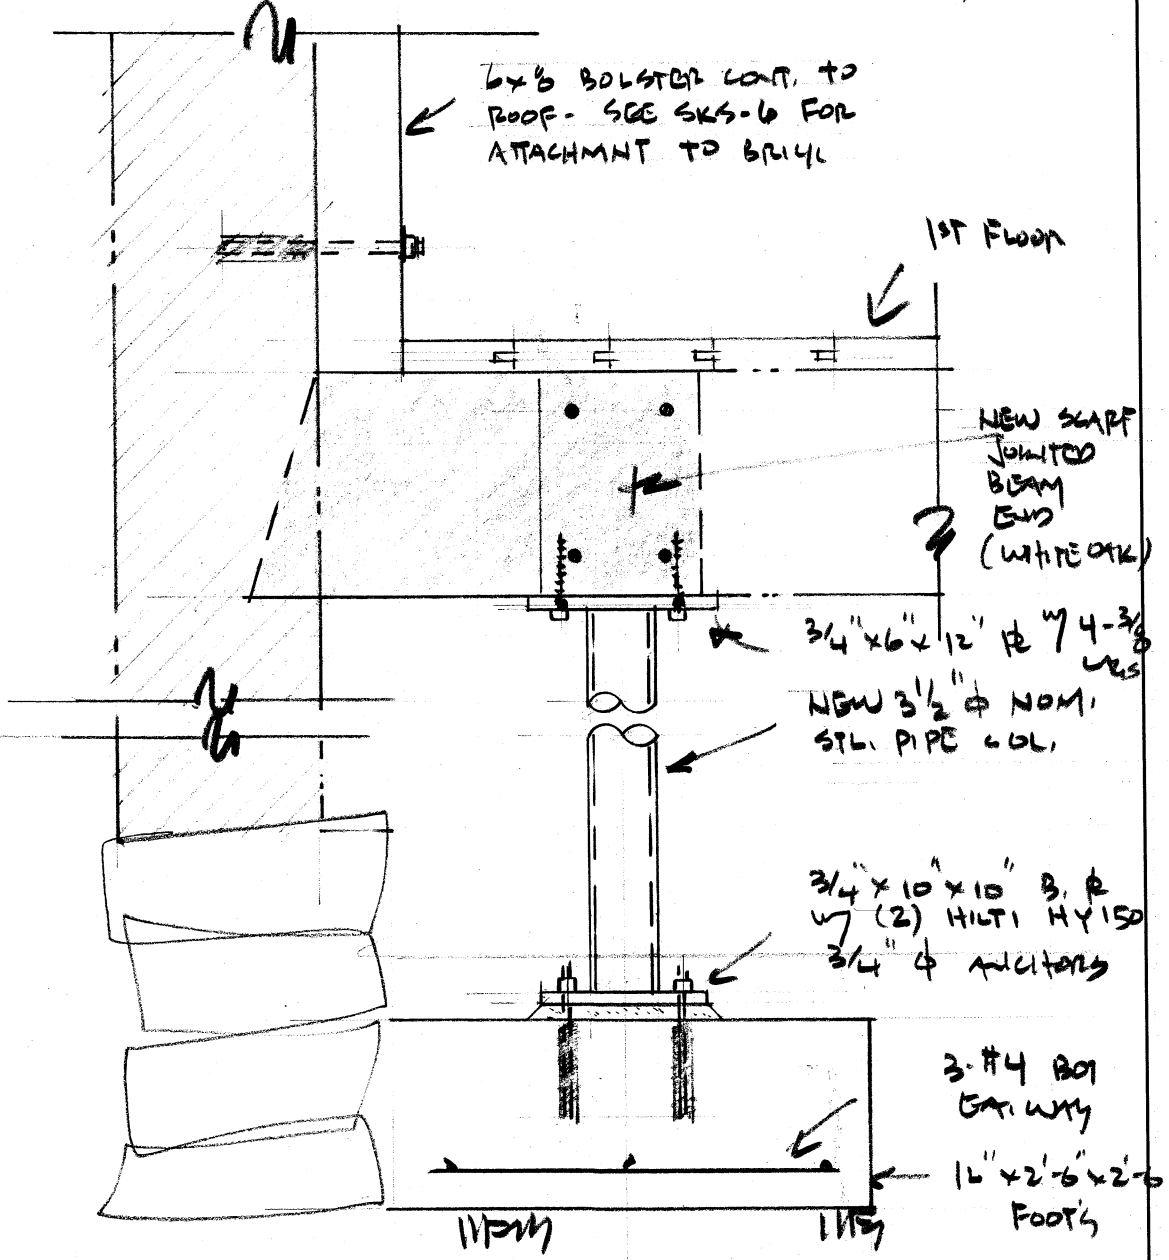 6x8 BOLSTER CONT. TO
ROOF - SEE SKS-6 FOR
ATTACHMNT TO BRICK
1ST FLOOR
NEW SCARF
JOINTED
BEAM
END
(WHITE OAK)
3/4" x 6" x 12" PL w/ 4-3/8
LAGS
NEW 3 1/2" Φ NOM.
STL. PIPE COL.
3/4" x 10" x 10" B. PL
w/ (2) HILTI HY150
3/4" Φ ANCHORS
3-#4 BOT
EA. WAY
x 2'-6" x 2'-6
FOOT'G